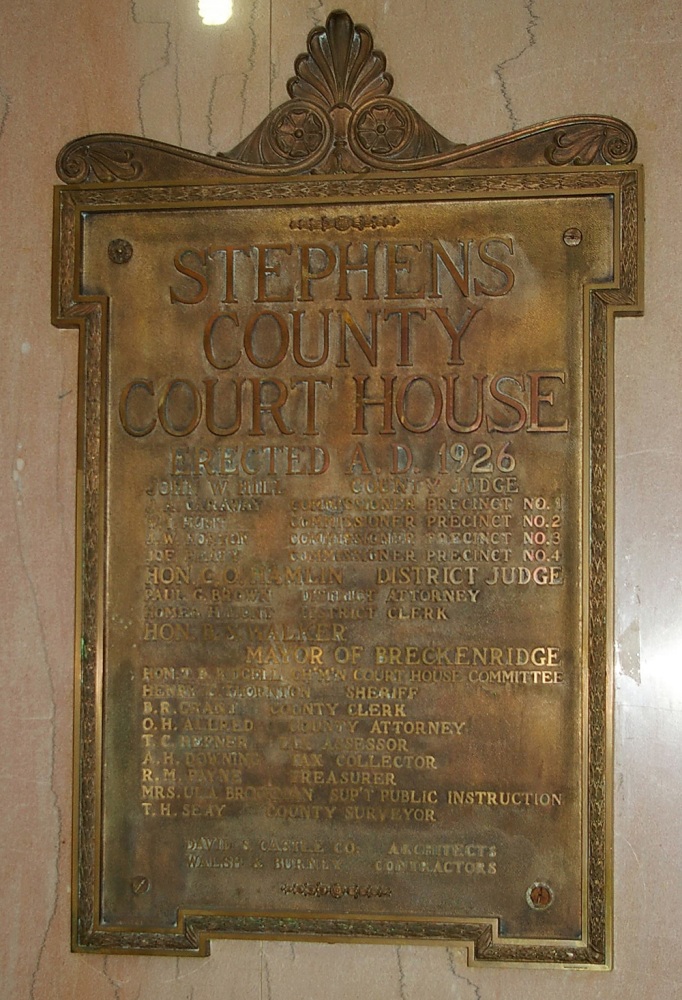 STEPHENS
COUNTY
COURT HOUSE
ERECTED A.D. 1926
JOHN W. HILL COUNTY JUDGE
COMMISSIONER PRECINCT NO.1
COMMISSIONER PRECINCT NO.2
COMMISSIONER PRECINCT NO.3
JOE COMMISSIONER PRECINCT NO.4
HON. C.O. HAMLIN DISTRICT JUDGE
PAUL G. BROWN DISTRICT ATTORNEY
DISTRICT CLERK
HON. WALKER
MAYOR OF BRECKENRIDGE
HON. CH'M'N COURT HOUSE COMMITTEE
HENRY SHERIFF
B.R. COUNTY CLERK
O.H. ALLRED COUNTY ATTORNEY
T.C. HEFNER TAX ASSESSOR
A.H. DOWNING TAX COLLECTOR
R.M. PAYNE TREASURER
MRS. ULA SUP'T PUBLIC INSTRUCTION
T.H. SEAY COUNTY SURVEYOR
DAVID S. CASTLE CO. ARCHITECTS
WALSH & BURNEY CONTRACTORS